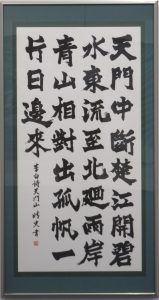 天門中斷楚江開碧
水東流至北廻兩岸
青山相對出孤帆一
片日邊來
李白诗天门山